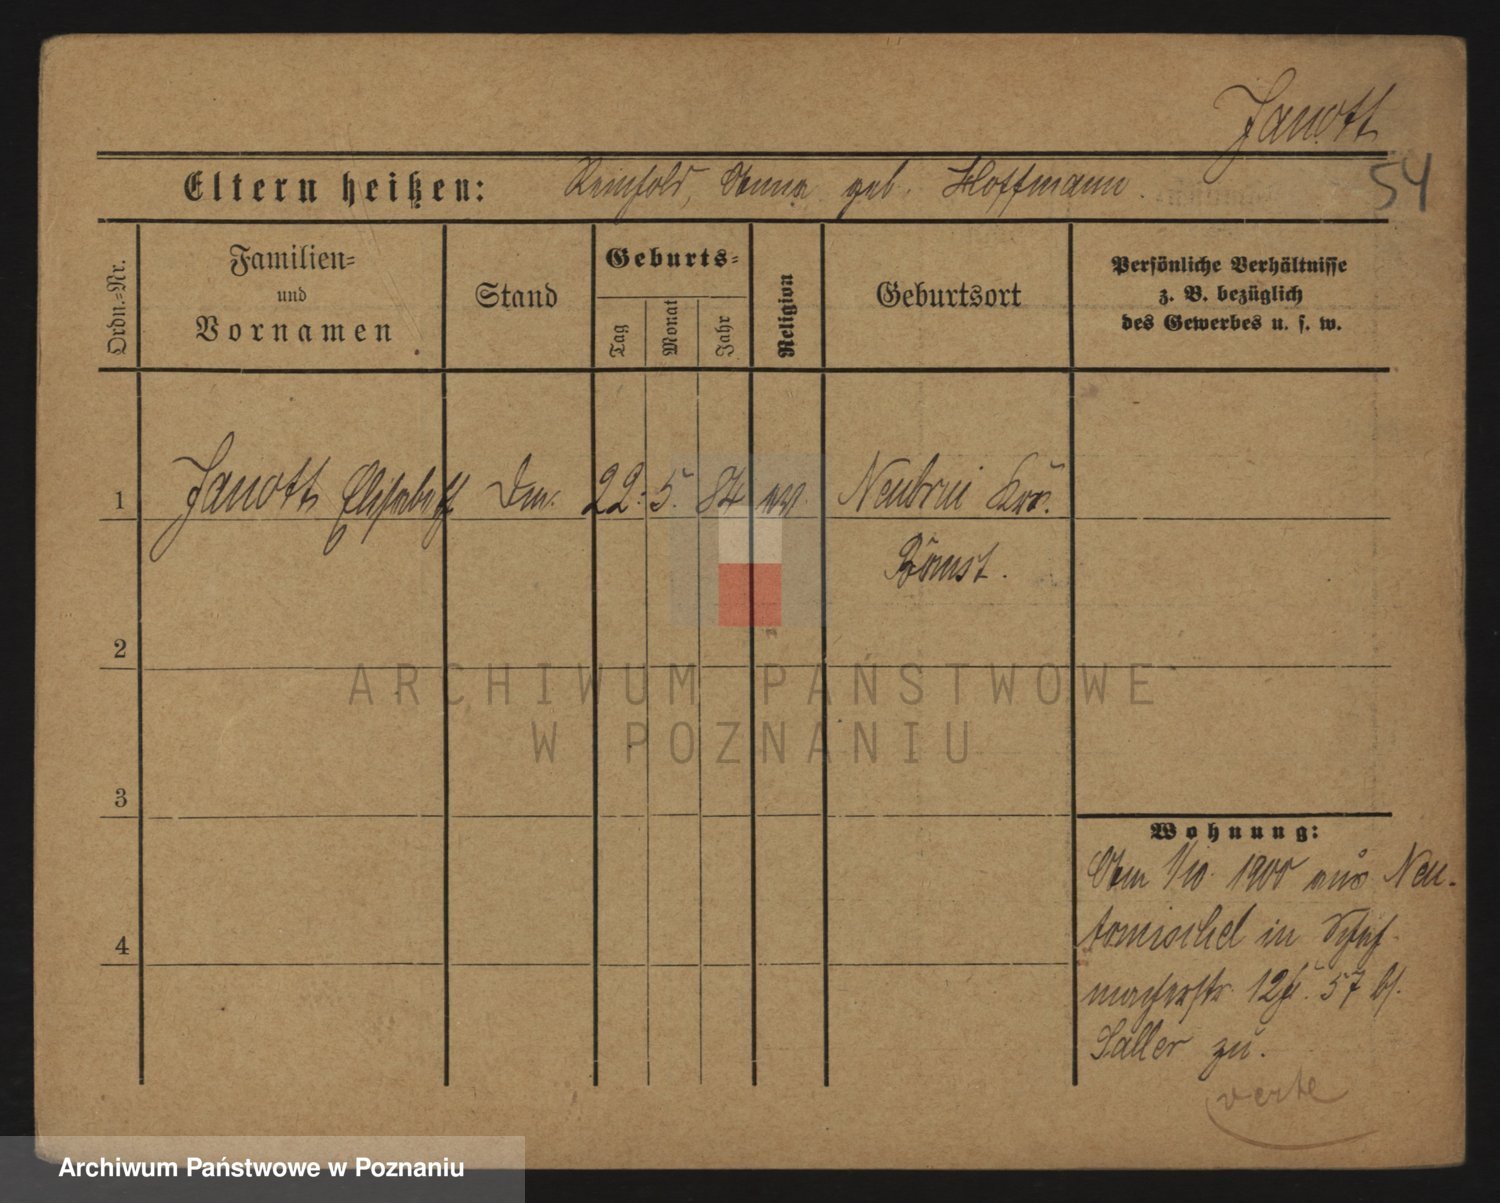 Janott
54
Eltern heißen: Reinhold, Anna geb. Hoffmann
Ordn.-Nr.
Familien-
und
Vornamen
Stand
Geburts-
Tag
Monat
Jahr
Religion
Geburtsort
Persönliche Verhältnisse
z. B. bezüglich
des Gewerbes u. s. w.
1 Janott Elisabeth 22. 5. 84 ev Krs.
Bomst.
2
3
4
Wohnung:
Am 1/10. 1900 aus Neu-
tomischel in Schuh-
macherstr. 12 57 bei
Saller zu.
verte
ARCHIWUM PAŃSTWOWE
W POZNANIU
Archiwum Państwowe w Poznaniu